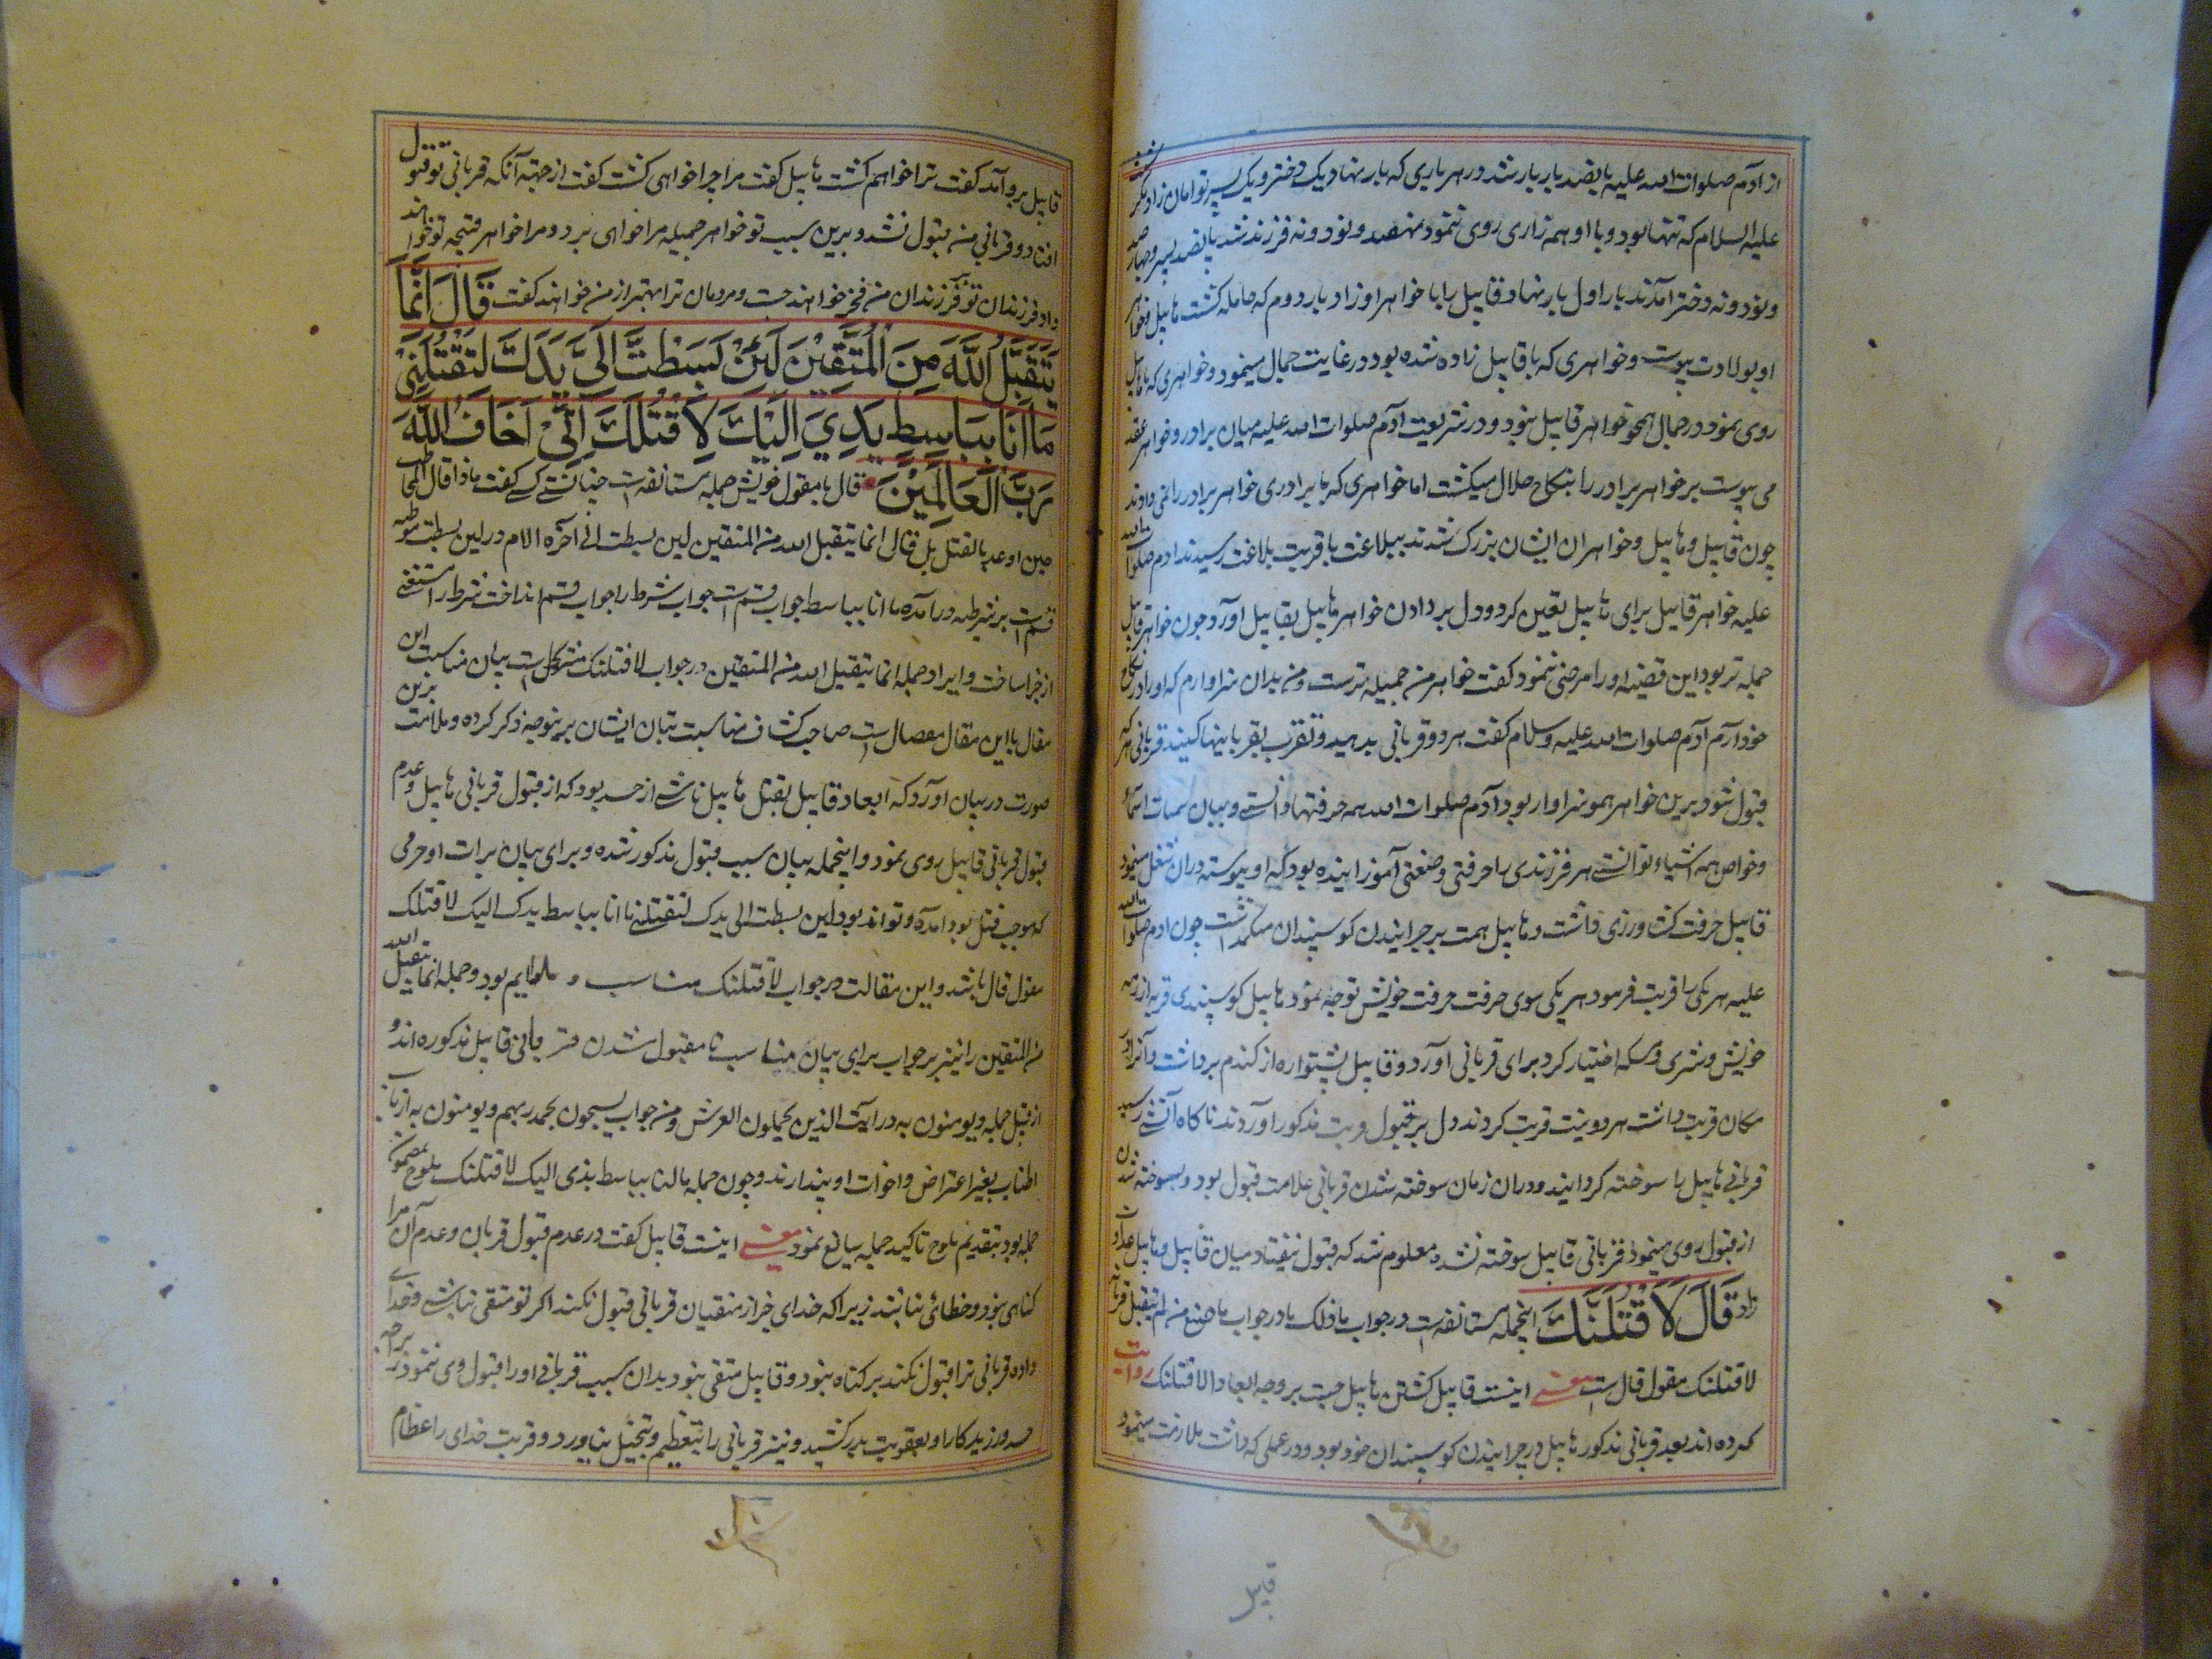 از آدم صلوات الله علیه پانصد بار بار شد در هر باری که بار نهاد یک دختر و یک پسر توامان زاد مگر شیث
علیه السلام که تنها بود و با او همزاری روی ننمود نهصد و نود و نه فرزند شد پانصد پسر و چهار صد
و نود و نه دختر آمدند بار اول بار نهاد و قابیل را با خواهر او زاد بار دوم که حامله گشت هابیل و خواهر
او بولادت پیوست و خواهری که با قابیل زاده شده بود در غایت جمال مینمود و خواهری که با هابیل
روی نمود در جمال همچو خواهر قابیل نبود و در شریعت آدم صلوات الله علیه میان برادر و خواهر عقد
می پیوست هر خواهر برادر را بنکاح حلال میگشت اما خواهری که با برادری خواهر برادر را نمی دادند
چون قابیل و هابیل و خواهران ایشان بزرک شدند ببلاغت یا قریب بلاغت رسیدند ادم صلوات الله
علیه خواهر قابیل برای هابیل تعین کرد و دل بر دادن خواهر هابیل بقابیل آورد چون خواهر قابیل
جمیله تر بود این قضیه او را مرضی ننمود کفت خواهر من جمیله ترست و من بدان سزاوارم که او را در نکاح
خود آرم آدم صلوات الله علیه وسلام کفت هر دو قربانی بدهید و تقرب بقربانیها کنید قربانی هر که
قبول شود برین خواهر همو سزاوار بود آدم صلوات الله همه حرفتها دانستی و بیان سمات اسماء
و خواص همه اشیاء توانستی هر فرزندی را حرفتی و صنعتی آموزاینده بود که او پیوسته دران شغل مینمود
قابیل حرفت کشاورزی داشت و هابیل همت بر چرایندن کوسپندان میکماشت چون ادم صلوات الله
علیه هر یکی را قربت فرمود هر یکی سوی حرفت حرفت خویش توجه نمود هابیل کوسپندی فربه از رمه
خویش و شیری و مسکه اختیار کرد برای قربانی آورد و قابیل پشتواره از کندم برداشت و آنرا در
مکان قربت داشت هر دو نیت قربت کردند دل بر قبول قربت مذکور آوردند ناکاه آتشی رسید
قربانی هابیل را سوخته کردانید و دران زمان سوخته شدن قربانی علامت قبول بود و بسوخته شدن
از قبول روی مینمود قربانی قابیل سوخته نشد معلوم شد که قبول نیفتاد میان قابیل و هابیل عداوت
زاد قَالَ لَاَقْتُلَنَّكَ اینجمله مستانفه است در جواب ماذلک یا در جواب ما صنع من لم یتقبل قربانه
لاقتلنک مقول قال است معنی اینست قابیل کشتن هابیل جست بر وجه ایعاد لاقتلنک روایت
کرده اند بعد قربانی مذکور هابیل در چرایندن کوسپندان خود بود و در عملی که داشت ملازمت مینمود
قابیل
قابیل برو آمد کفت ترا خواهم کشت هابیل کفت مرا چرا خواهی کشت کفت از جهة آنکه قربانی تو قبول
افتاد و قربانی من قبول نشد و برین سبب تو خواهر جمیله مرا خواهی برد و مرا خواهر قبیحه تو خواهند
داد و فرزندان تو بر فرزندان من فخر خواهند جست و مردمان ترا بهتر از من خواهند کفت قَالَ اِنَّمَا
يَتَقَبَّلُ اللَّهُ مِنَ الْمُتَّقِيْنَ لَئِنْ بَسَطْتَّ اِلَيَّ يَدَكَ لِتَقْتُلَنِيْ
مَا اَنَا بِبَاسِطٍ يَدِيَ اِلَيْكَ لِاَقْتُلَكَ اِنِّيْ اَخَافُ اللَّهَ
رَبَّ الْعَالَمِيْنَ قال با مقول خویش جمله مستانفه است چنانستی کسی کفت ماذا قال المخاطب
حین اوعد بالقتل بل قال انما یتقبل الله من المتقین لین بسطت الی آخره الام در لین بسطت موطیه
قسم است بر شرطیه درآمده ما انا بباسط جواب قسم است جواب شرط را جواب قسم انداخت شرط را مستغنی
از جزا ساخت و ایراد جمله انما یتقبل الله من المتقین در جواب لاقتلنک مشکل است بیان مناسبت این
مقال با این مقال معضال است صاحب کشاف مناسبت بیان ایشان برینوجه ذکر کرده و ملامت برین
صورت در بیان آورد که ایعاد قابیل بقتل هابیل ناشی از حسد بود که از قبول قربانی هابیل و عدم
قبول قربانی قابیل روی نمود و اینجمله بیان سبب قبول مذکور شده و برای بیان برات او جرمی
که موجب قتل بود آمده و تواند بود لین بسطت الی یدک لتقتلنی ما انا بباسط یدی الیک لاقتلک
مقول قال باشد و این مقالت در جواب لاقتلنک مناسب و ملایم بود و جمله انما یتقبل الله
من المتقین را نیز بر جواب برای بیان مناسب نا مقبول شدن قربانی قابیل مذکوره اند و
از قبیل جمله و یومنون به در آیت الذین یحملون العرش و من جواب یسبحون بحمد ربهم و یومنون به از باب
اطناب بغیر اعتراض و اخوات او پندارند و چون جمله ما انا بباسط یدی الیک لاقتلنک ملوح بمضمون
جمله بود بتقدیم ملوح تاکید جمله سایغ نمود معنی اینست قابیل کفت در عدم قبول قربان و عدم آن مرا
کناهی نبود و خطائی نباشد زیرا که خدای جز از متقیان قربانی قبول نکند اکر تو متقی نباشی و خدای
داده قربانی ترا قبول نکند بر کناه نبود و قابیل متقی نبود بدان سبب قربانی او را قبول روی ننمود
حسد ورزید کار او بعقوبت بدر کشید و نیز قربانی را بتعظیم و تبجیل نیاورد و قربت خدای را اعظام